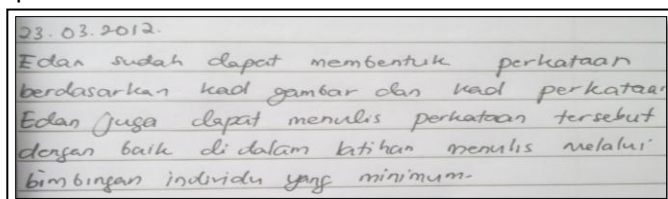 23.03.2012.
Edan sudah dapat membentuk perkataan
berdasarkan kad gambar dan kad perkataan
Edan juga dapat menulis perkataan tersebut
dengan baik di dalam latihan menulis melalui
bimbingan individu yang minimum.